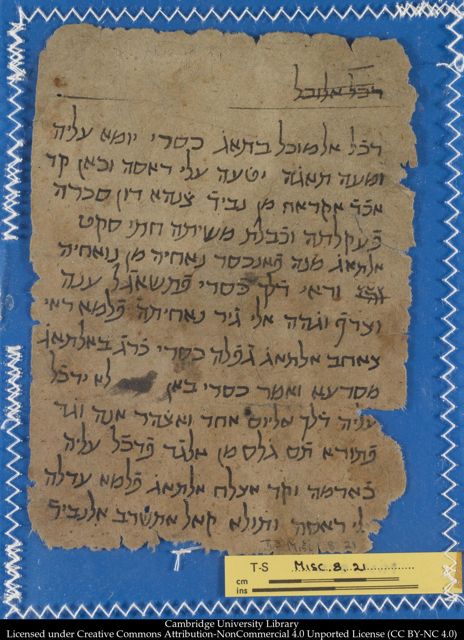 דכל אלמוכל
דכל אלמוכל בתאג כסרי יומא עליה
ומעה תאגה יצעה עלי ראסה וכאן קד
אכד אקדאח מן נביד דון סכרה
פעקלתה משיתה חתי סקט
אלתאג מנה פאנכסר נאחיה מן נואחיה
וראי דלך כסרי פתשאגל ענה
וצרף וגהה אלי גיר נאחיתה פלמא ראי
צאחב אלתאג גפלה כסרי כרג באלתאג
מסרעא ואמר כסרי באן לא ידכל
עליה דלך אליום אחד ואטהר אנה וגד
פתורא תם גלס מן אלגד פדכל עליה
כאדמה וקד אצלח אלתאג פלמא עדלה
עלי ראסה ותולא קאל אתשרב אלנביד
T-S Misc. 8. 21
T-S MISC. 8. 21
cm
ins
Cambridge University Library
Licensed under Creative Commons Attribution-NonCommercial 4.0 Unported License (CC BY-NC 4.0)